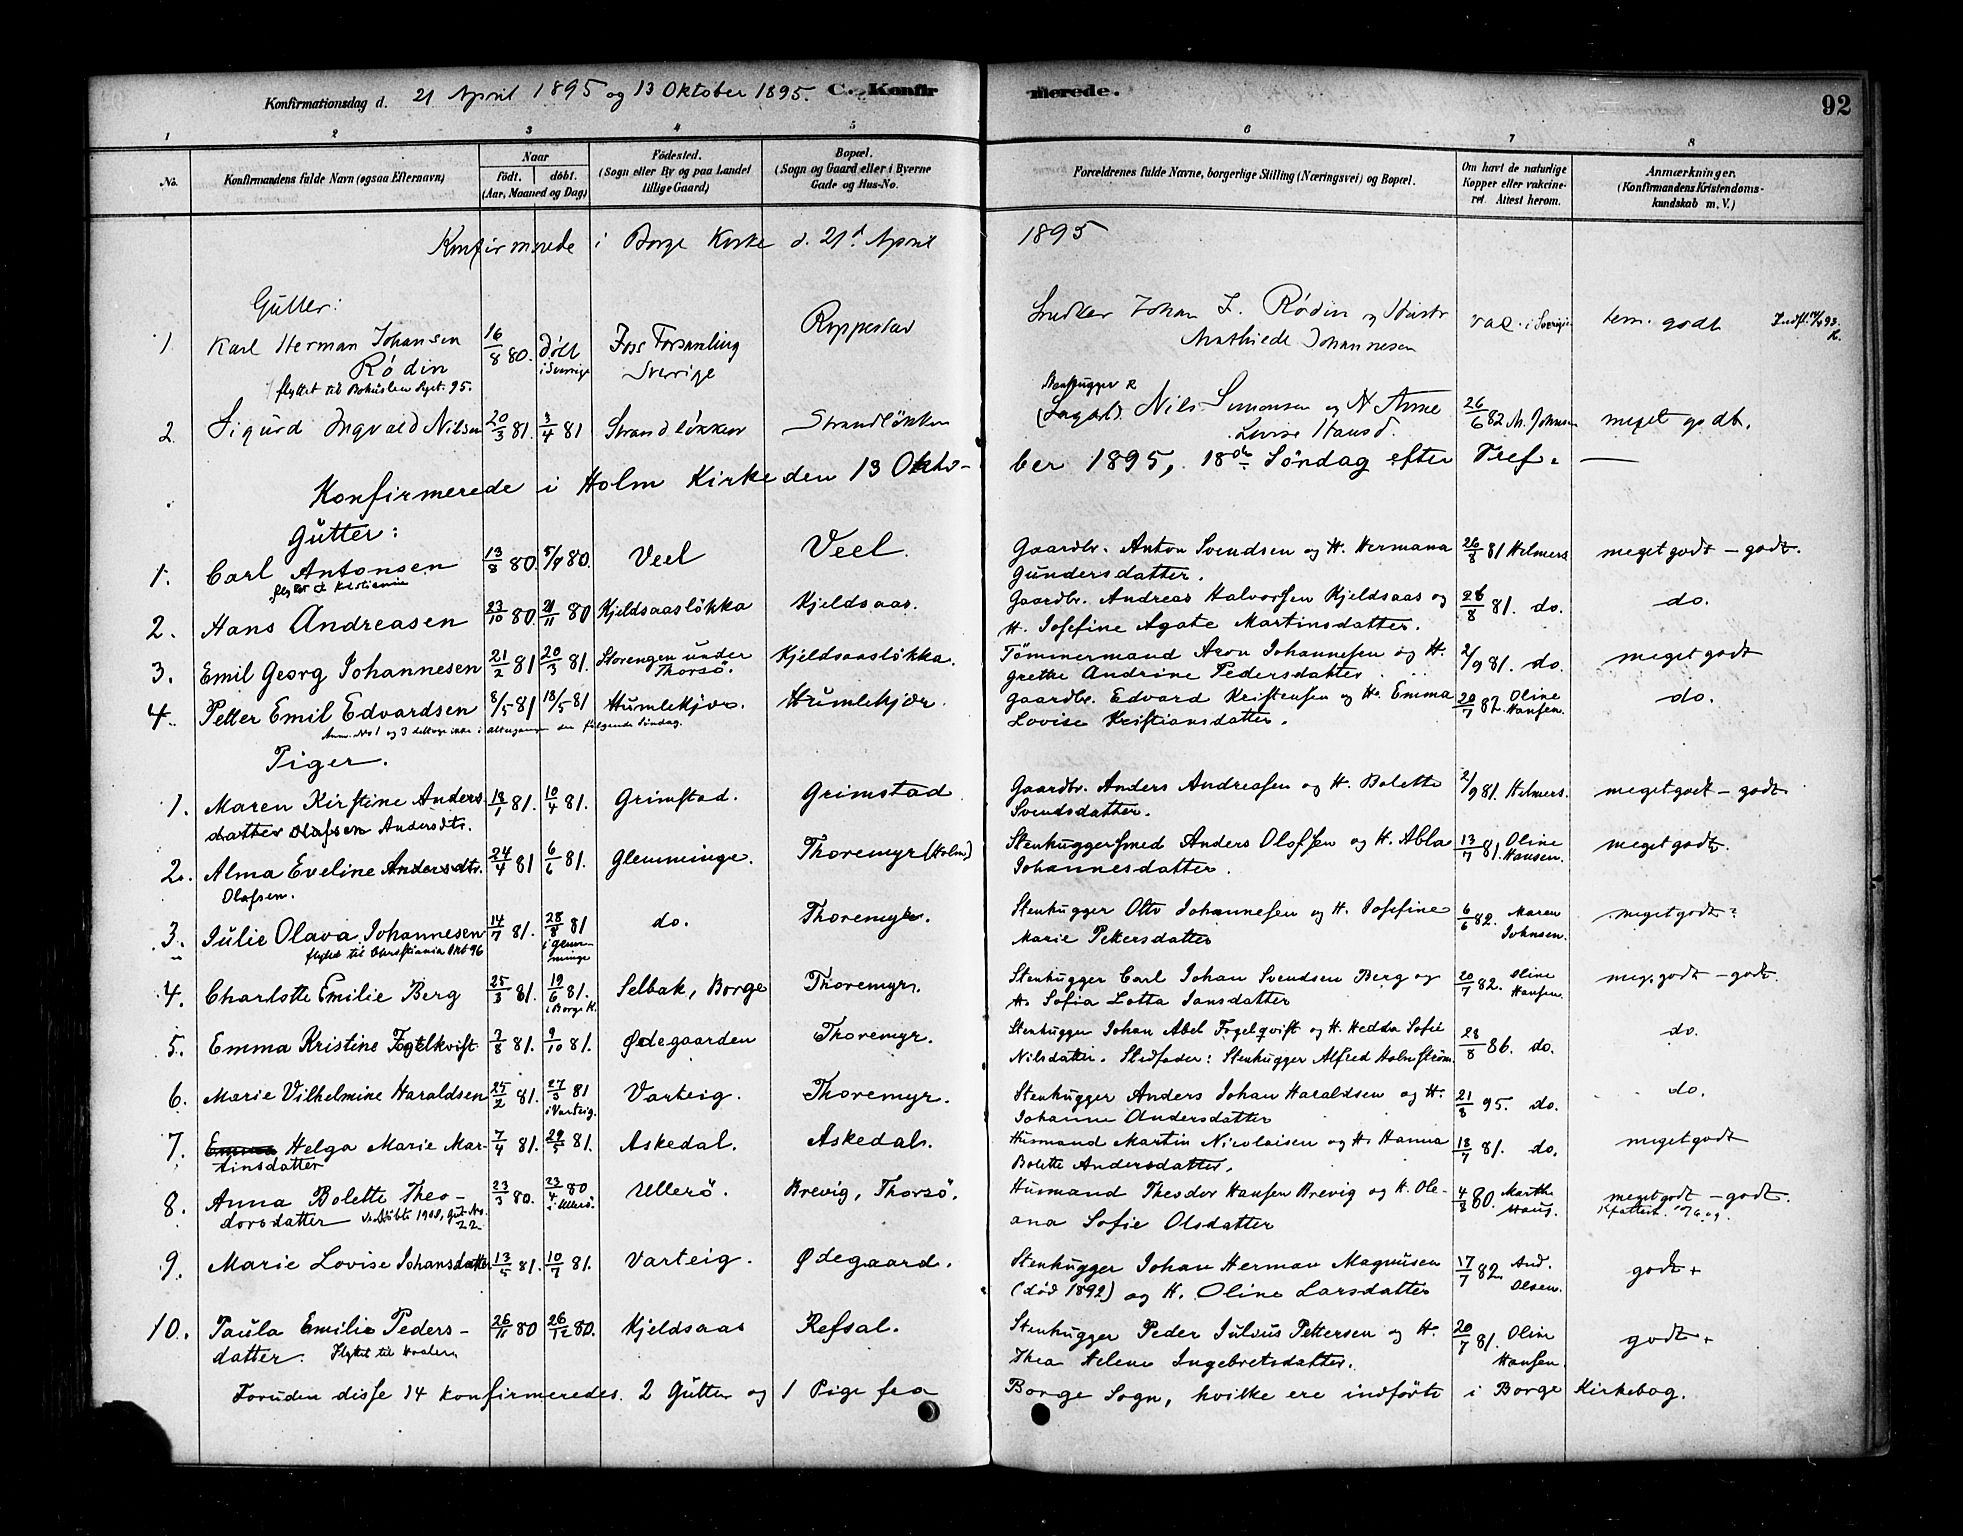 Konfirmationsdag d. 21 April 1895 og 13 Oktober 1895. C. Konfirmerede. 92
1 2 3 4 5 6 7 8
No. Konfirmandens fulde Navn (ogsaa Efternavn)
Naar
født. døbt.
(Aar, Maaned og Dag)
Fødested.
(Sogn eller By og paa Landet
tillige Gaard)
Bopæl.
(Sogn og Gaard eller i Byerne
Gade og Hus-No.
Forældrenes fulde Navne, borgerlige Stilling (Næringsvei) og Bopæl.
Om havt de naturlige
Kopper eller vakcine-
ret. Attest herom.
Anmærkninger.
(Konfirmandens Kristendoms-
kundskab m. V.)
Konfirmerede i Borge Kirke d. 21d April 1895
Gutter:
1 Karl Herman Johansen 16/8 80. Døbt Foss Forsamling Roppestad Snedker Johan Z. Rødin og Hustr vac. i Sverige tem. godt
Rødin i Sverige Sverige Mathilde Johannesen
flyttet til Bohuslen Sept. 95.
2. Sigurd Ingvald Nilsen 20/3 81. 3/4 81 Strandløkken Strandløkken Stenhugger Nils Simonsen og H Anne 26/6 82 M. Johnsen meget godt.
Lovise Hansd.
Konfirmerede i Holm Kirke den 13 Okto- ber 1895, 18de Söndag efter Tref.
Gutter:
1. Carl Antonsen 13/8 80. 5/9 80. Veel Veel. Gaardbr. Anton Svendsen og H. Hermana 26/8 81 Helmers meget godt – godt.
flyttet t. Kristiania Gundersdatter.
2. Hans Andreasen 23/10 80. 21/11 80 Kjeldsaasløkka Kjeldsaas. Gaardbr. Andreas Halvorsen Kjeldsaas og 26/8 81. do. do.
H. Josefine Agate Martinsdatter.
3. Emil Georg Johannesen 21/2 81 20/3 81. Storengen under Kjeldsaasløkka. Tömmermand Aron Johannesen og H. 2/9 81. do. meget godt
Thorsö. Grethe Andrine Pedersdatter
4. Petter Emil Edvardsen 8/5 81 18/5 81 Humlekjær. Humlekjær. Gaardbr. Edvard Kristensen og H. Emma 20/7 82. Oline Hansen. do.
Anm. No 1 og 3 deltoge ikke i altergangen den følgende Söndag. Lovise Kristiansdatter.
Piger.
1. Maren Kirstine Anders 18/1 81. 10/4 81. Grimstad. Grimstad Gaardbr. Anders Andreasen og H. Bolette 2/9 81. Helmers. meget godt – godt
datter Olafsen Andersdtr. Svendsdatter.
2. Alma Eveline Andersdtr. 24/4 81 6/6 81. Glemminge. Thoremyr (Holm) Stenhuggersmed Anders Olofsen og H. Abla 13/7 81. Oline Hansen. meget godt.
Olafsen. Johannesdatter.
3. Julie Olava Johannesen 14/7 81. 28/8 81 do. Thoremyr. Stenhugger Otto Johannesen og H. Josefine 6/6 82. Maren Johnsen. meget godt
flyttet til Christiania Okt 96 i Glem- minge Marie Pettersdatter
4. Charlotte Emilie Berg 25/3 81. 19/6 81. Selbak, Borge Thoremyr. Stenhugger Carl Johan Svendsen Berg og 20/7 82. Oline Hansen. meg. godt – godt
i Borge K. H. Sofia Lotta Jansdatter
5. Emma Kristine Fogelkvist 3/8 81. 9/10 81. Ødegaarden Thoremyr. Stenhugger Johan Abel Fogelqvist og H. Hedda Sofie 28/8 86. do. do.
Nilsdatter. Stedfader: Stenhugger Alfred Holmström
6. Marie Vilhelmine Haraldsen 25/2 81. 27/3 81 Varteig. Thoremyr. Stenhugger Anders Johan Haraldsen og H. 21/8 95. do. do.
i Varteig. Johanne Andersdatter
7. Emma Helga Marie Mar- 7/4 81. 29/5 81. Askedal. Askedal. Husmand Martin Nicolaisen og H. Hanna 18/7 81. do. meget godt
tinsdatter Bolette Andersdatter.
8. Anna Bolette Theo- 23/3 80. 23/4 80 Ullerö. Brevig, Thorsö. Husmand Theodor Hansen Brevig og H. Ole- 4/8 80. Marthe Haug. meget godt – godt.
dorsdatter Se Döbte 1908, gut. No. 22 i Ullerö. ana Sofie Olsdatter
9. Marie Lovise Johansdatter 13/5 81. 10/7 81. Varteig. Ødegaard. Stenhugger Johan Herman Magnusen 17/7 82. And. Olsen. godt +
(död 1892) og H. Oline Larsdatter
10. Paula Emilie Peders- 26/11 80 26/12 80. Kjeldsaas Refsal. Stenhugger Peder Julius Pettersen og H. 20/7 81. Oline Hansen. godt +
datter. Flyttet til Hvaler. Thea Helene Ingebretsdatter.
Foruden disse 14 konfirmeredes 2 Gutter og 1 Pige fra Borge Sogn, hvilke ere indførte i Borge Kirkebog.